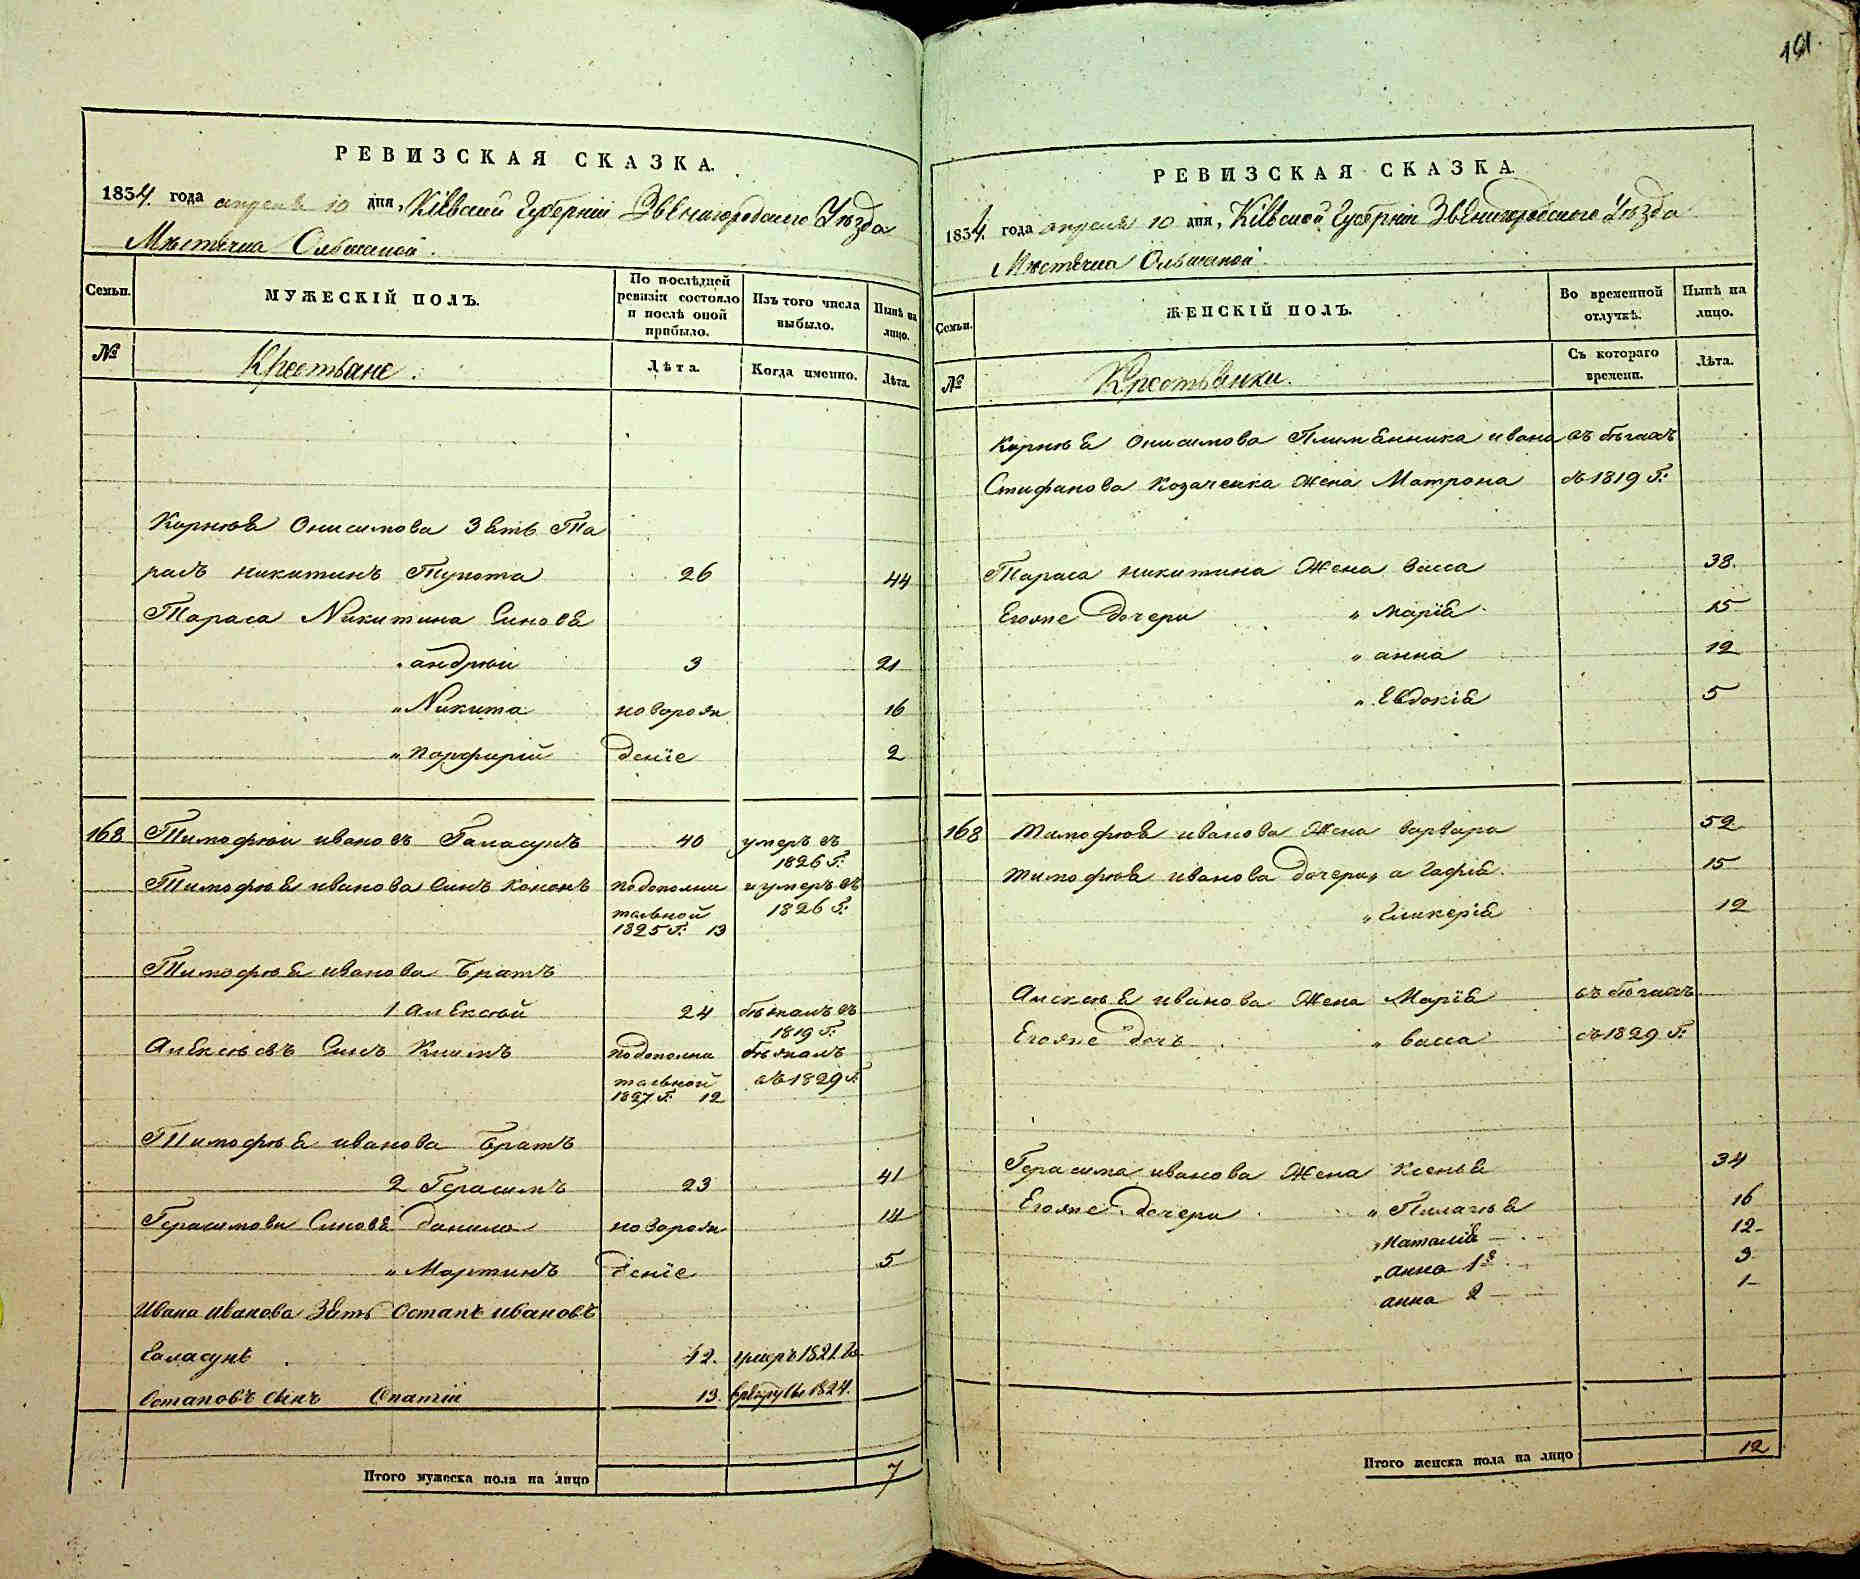 191.
РЕВИЗСКАЯ СКАЗКА.
1834. года апреля 10 дня, Кіевской Губерніи Звенигородского Уезда
Мѣстечка Ольшаной.
Семьи.
МУЖЕСКІЙ ПОЛЪ.
По послѣдней ревизіи состояло и послѣ оной прибыло.
Изъ того числа выбыло.
Нынѣ на лицо.
№
Крестьане.
Лѣта.
Когда именно.
Лѣта.
Корнѣя Онисимова Зять Та
расъ никитинъ 26 44
Тараса Никитина Синовя
андрѣй 3 21
" Никита новорож 16
" порфирій деніе 2
168 Тимофѣй ивановъ Галасунъ 40 умеръ въ
1826 Г:
Тимофѣя иванова Синъ кононъ подополни и умеръ въ
тельной 1826 Г:
1825 Г: 13
Тимофѣя иванова Братъ
1 алексѣй 24 бѣжалъ въ
1819 Г:
Алексѣевъ Синъ Климъ подополни бѣжалъ
тельной въ 1829 Г:
1827 Г: 12
Тимофѣя иванова Братъ
2 Герасимъ 23 41
Герасимови Синовя данило новорож 14
" Мартинъ деніе 5
Ивана иванова Зять Остапъ ивановъ
Галасунъ 42. умеръ 1821 Го
Остаповъ Синъ 13. 1824.
Итого мужеска пола на лицо 7
РЕВИЗСКАЯ СКАЗКА.
1834. года апреля 10 дня, Кіевской Губерніи Звенигородского Уезда
Мѣстечка Ольшаной.
Семьи.
ЖЕНСКІЙ ПОЛЪ.
Во временной отлучкѣ.
Нынѣ на лицо.
№
Крестьянки.
Съ котораго времени.
Лѣта.
Корнѣя Онисимова Племянника ивана въ бѣгахъ
Стифанова Козаченка Жена Матрона съ 1819 Г:
Тараса никитина Жена васса 38.
Егоже дочери " марія 15
" анна 12
" Евдокія 5
168 Тимофѣя иванова Жена варвара 52
Тимофѣя иванова дочери " агафія 15
" Гликерія 12
Алексѣя иванова Жена Марія въ бѣгахъ
Егоже дочь " васса съ 1829 Г:
Герасима иванова Жена ксенья 34
Егоже дочери " Пилагѣя 16
" Наталія 12
" анна 1я 3
анна 2 1
Итого женска пола на лицо 12